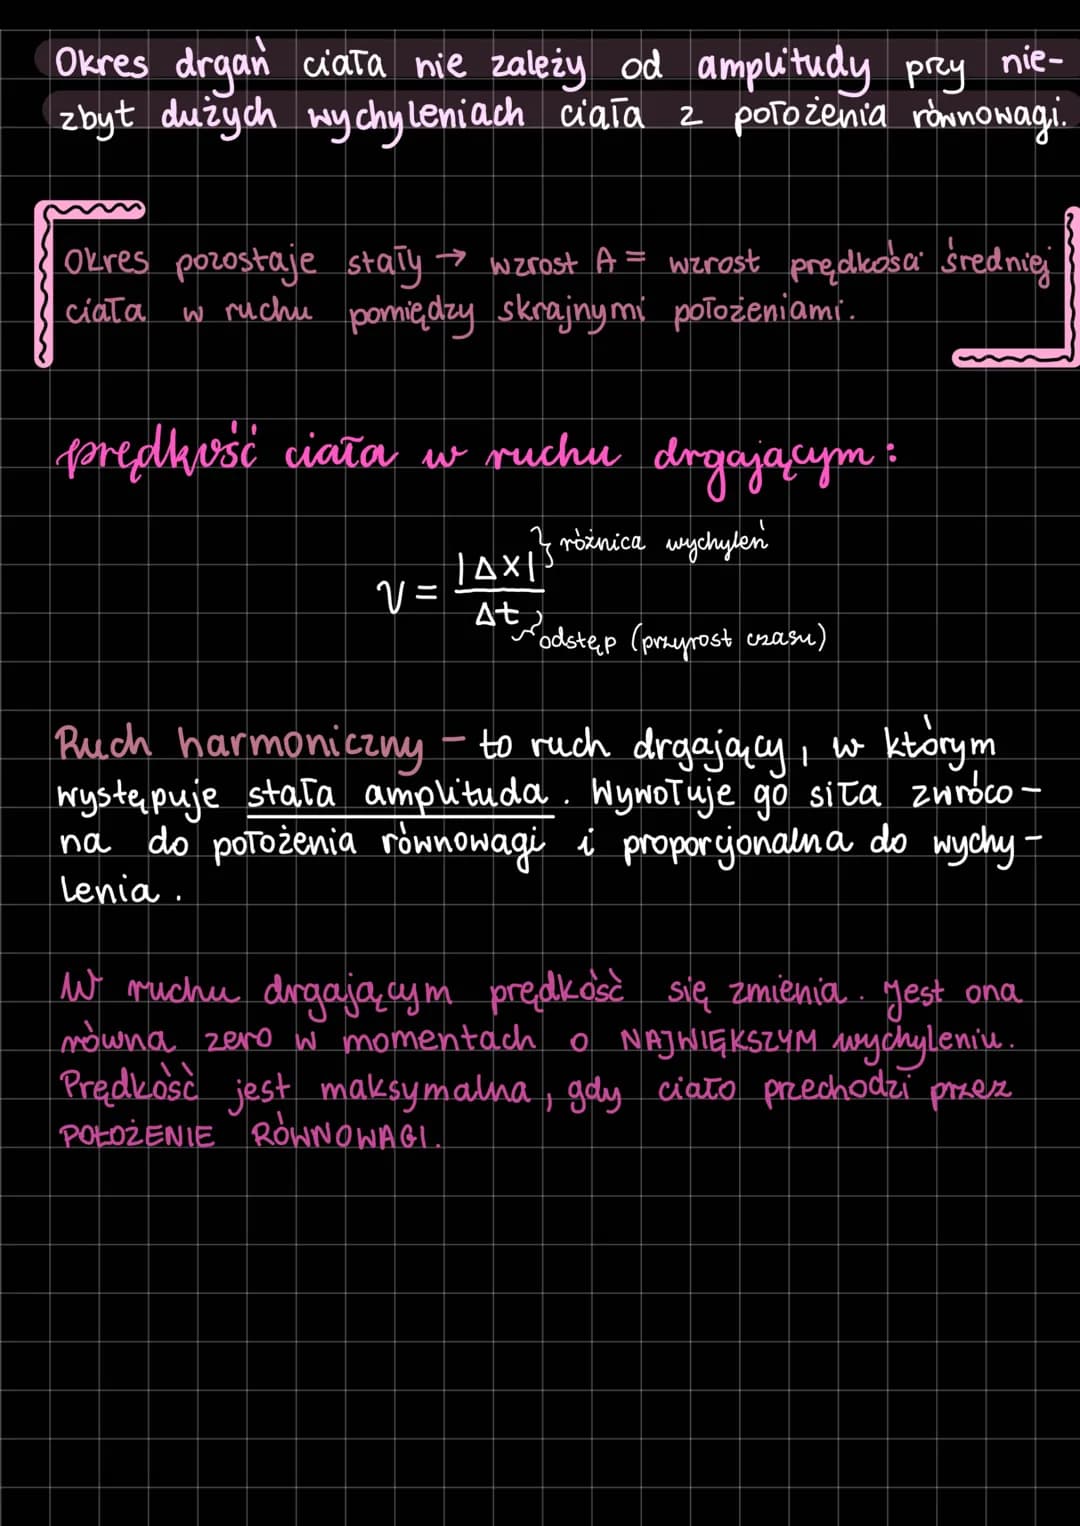 Okres drgań ciała nie zależy od amplitudy przy nie-
zbyt dużych wychyleniach ciała z położenia równowagi.
Okres pozostaje stały → wzrost A = wzrost prędkości średniej
ciała w ruchu pomiędzy skrajnymi położeniami.
prędkość ciała w ruchu drgającym:
} różnica wychyleń
V = |Δx| / Δt
} odstęp (przyrost czasu)
Ruch harmoniczny – to ruch drgający, w którym
występuje stała amplituda. Wywołuje go siła zwróco-
na do położenia równowagi i proporcjonalna do wychy-
lenia.
W ruchu drgającym prędkość się zmienia. Jest ona
równa zero w momentach o NAJWIĘKSZYM wychyleniu.
Prędkość jest maksymalna, gdy ciało przechodzi przez
POŁOŻENIE RÓWNOWAGI.